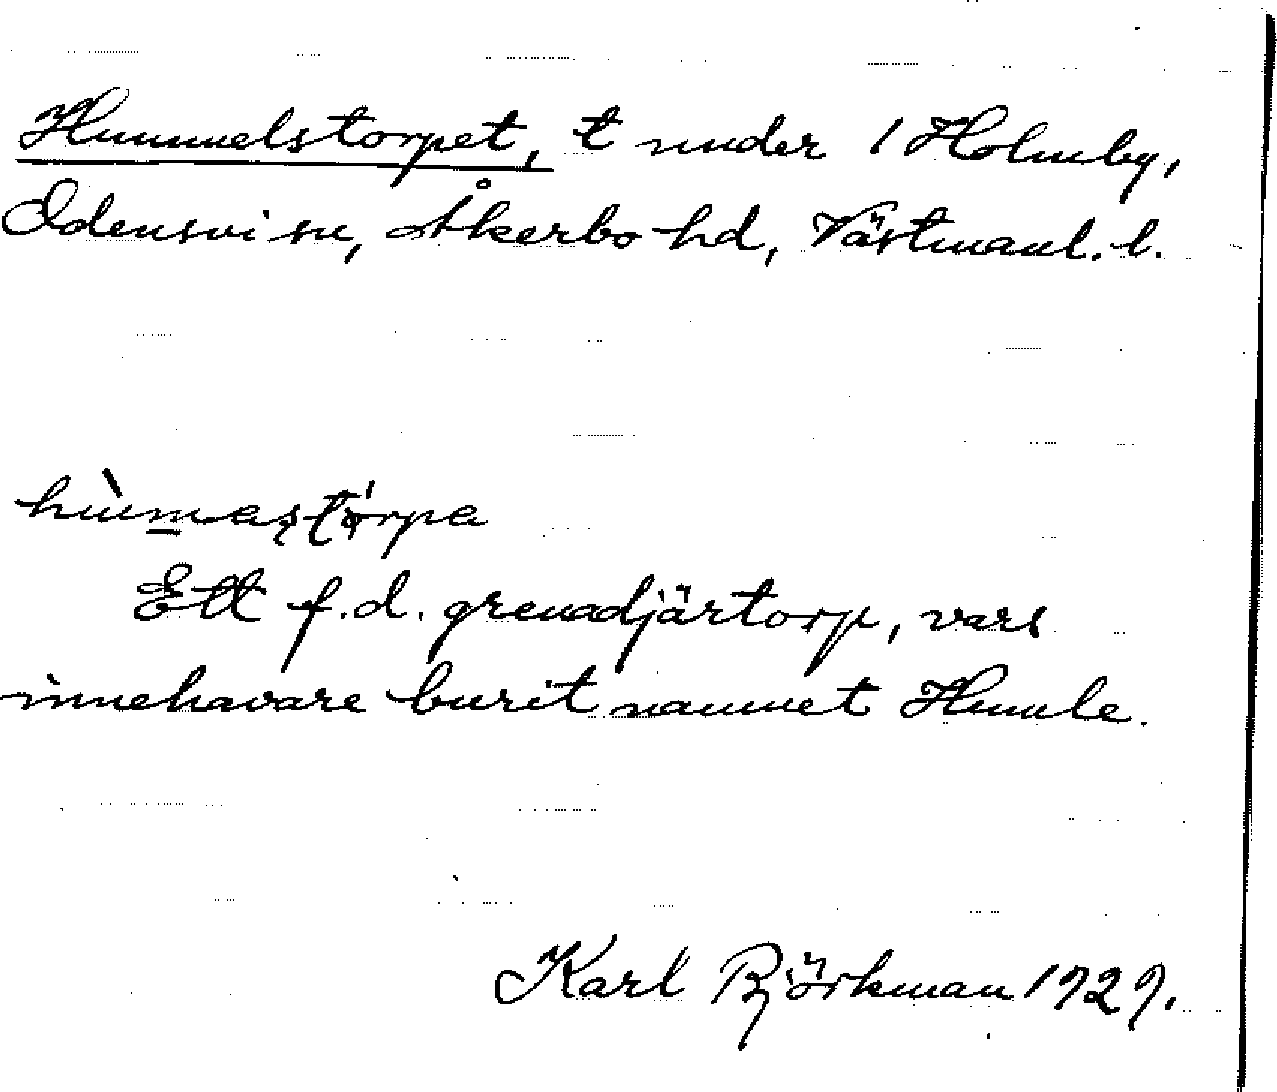 Hummelstorpet, t under 1 Holmby,
Odensvi sn, Åkerbo hd, Västmanl. l.
Ett f.d. grenadjärtorp, vars
innehavare burit namnet Humle.
Karl Björkman 1929.